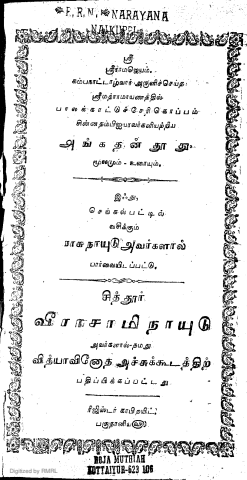 P. R. N. NARAYANA
NAIKUPPI
ஸ்ரீ
ஸ்ரீராமஜெயம்.
கம்பகாட்டாழ்வார் அருளிச்செய்த
ஸ்ரீமத்ராமாயணத்தில்
பாலக்காட்டுச்சேரிகொப்பம்
சின்னதம்பிஐயரவர்களியற்றிய
அங்கதன்தூது
மூலமும் - உரையும்,
இஃது,
செங்கல்பட்டில்
வசிக்கும்
ராகநாயுடுஅவர்களால்
பார்வையிடப்பட்டு,
சித்தூர்
வீராசாமிநாயுடு
அவர்களால்-தமது
வித்யாவினோத அச்சுக்கூடத்திற்
பதிப்பிக்கப்பட்டது
ரிஜிஸ்டர் காபிரயிட்,
Digitized by RMRL
ROJA MUTHIAH
KOTTAIYUR-623 106